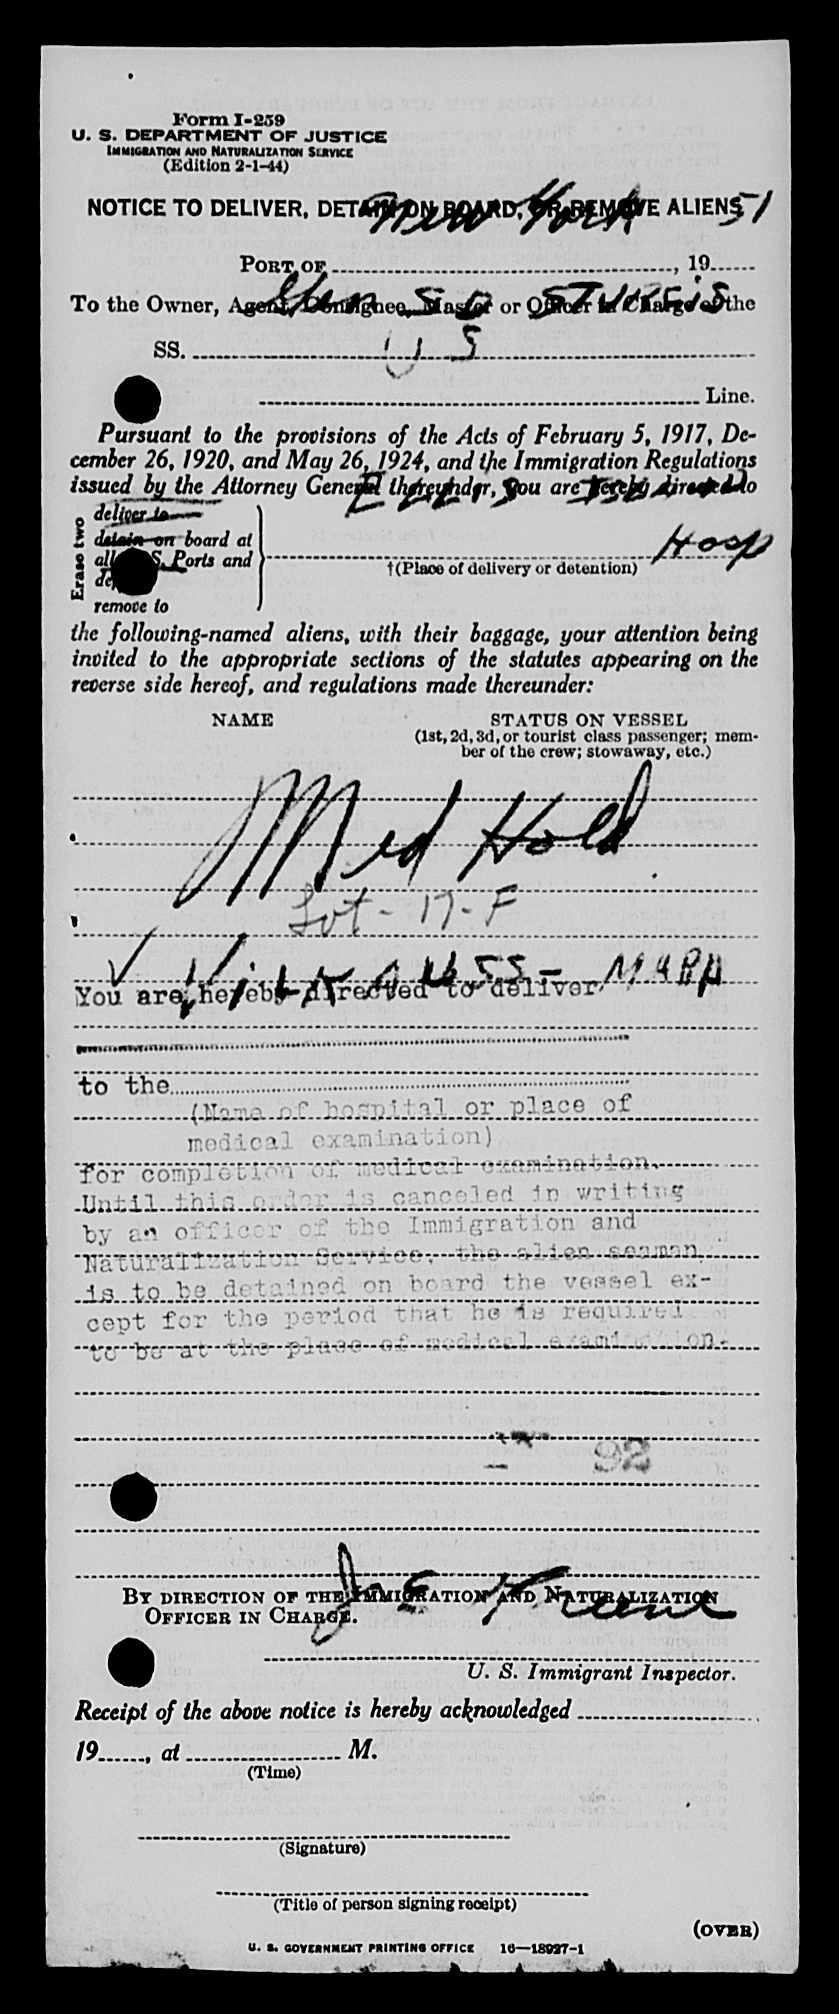 Form I-259
U. S. DEPARTMENT OF JUSTICE
IMMIGRATION AND NATURALIZATION SERVICE
(Edition 2-1-44)
NOTICE TO DELIVER, DETAIN ON BOARD, OR REMOVE ALIENS
New York 51
PORT OF , 19
To the Owner, Agent, Consignee, Master or Officer in Charge of the
Gen S D STURGIS
SS. U S
Line.
Pursuant to the provisions of the Acts of February 5, 1917, De-
cember 26, 1920, and May 26, 1924, and the Immigration Regulations
issued by the Attorney General thereunder, you are hereby directed to
ELLIS ISLAND
Erase two
deliver to
detain on board at
all U. S. Ports and
remove to
Hosp
†(Place of delivery or detention)
the following-named aliens, with their baggage, your attention being
invited to the appropriate sections of the statutes appearing on the
reverse side hereof, and regulations made thereunder:
NAME STATUS ON VESSEL
(1st, 2d, 3d, or tourist class passenger; mem-
ber of the crew; stowaway, etc.)
Med Hold
17-F
You are hereby directed to deliver
to the
(Name of hospital or place of
medical examination)
for completion of medical examination.
Until this order is canceled in writing
by an officer of the Immigration and
Naturalization Service, the alien seaman
is to be detained on board the vessel ex-
cept for the period that he is required
to be at the place of medical examination.
92
BY DIRECTION OF THE IMMIGRATION AND NATURALIZATION
OFFICER IN CHARGE.
U. S. Immigrant Inspector.
Receipt of the above notice is hereby acknowledged
19 , at M.
(Time)
(Signature)
(Title of person signing receipt)
(OVER)
U. S. GOVERNMENT PRINTING OFFICE 16—18927-1